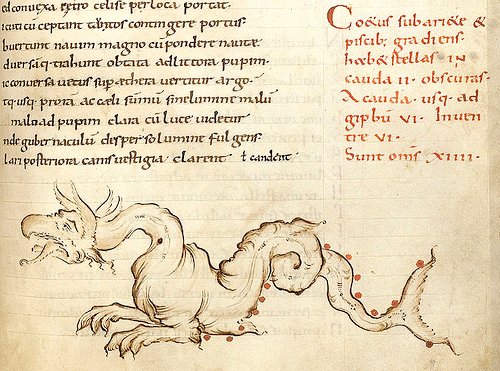 ed convexa retro celise per loca portat.
buertunt nauim magno cū pondere nautæ
diuersúq; trahunt obtata ad littora pupim.
conuersa uetus sup æthera uertitur argo.
usq; prorā ac cæli sūmū sine lumine malū
malo ad pupim clara cū luce uidetur
inde gubernaculū desper so lumine fulgens
lari posteriora canis uestigia clarent ł candent
Coetus subariete &
piscib; gradiens.
habet stellas in
cauda II. obscuras.
A cauda usq; ad
gipbū VI. In uen
tre VI.
Sunt oms XIIII.